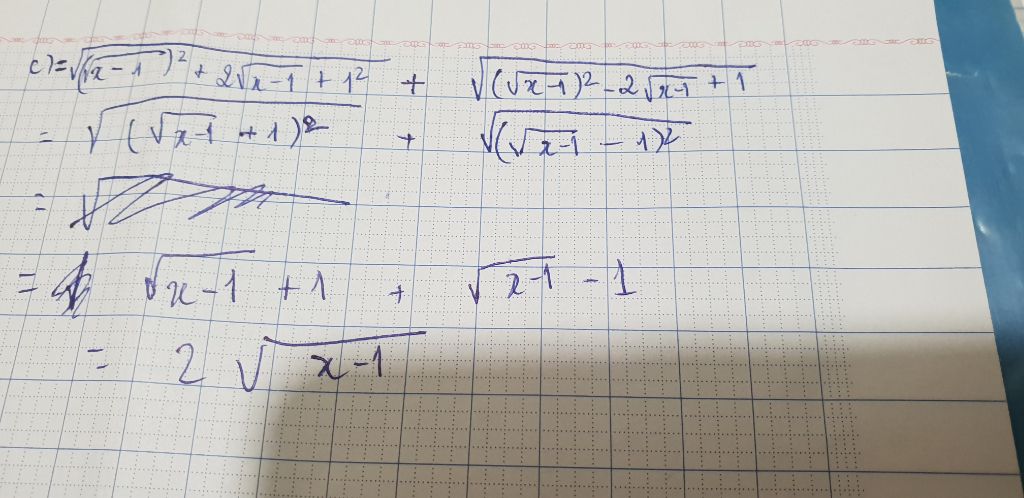 c) = √((√x-1)² + 2√x-1 + 1²) + √((√x-1)² - 2√x-1 + 1)
= √((√x-1 + 1)²) + √((√x-1 - 1)²)
= √
= √x-1 + 1 + √x-1 - 1
= 2 √x-1